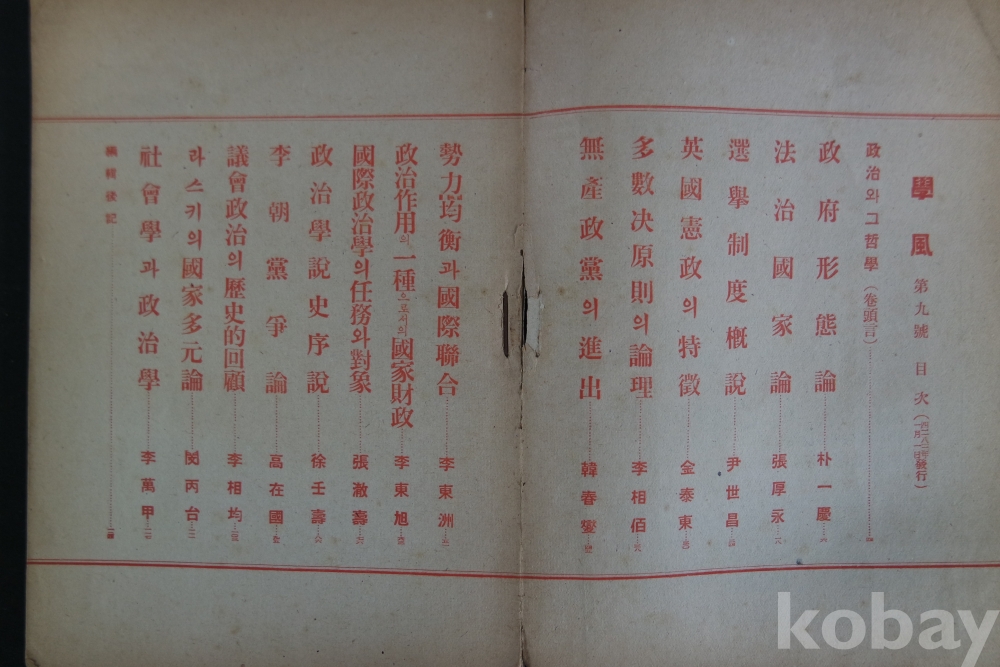 學風 第九號 目次 發行
政治와 그 哲學 (卷頭言)
政府形態論 朴一慶
法治國家論 張厚永
選擧制度槪說 尹世昌
英國憲政의 特徵 金泰東
多數決原則의 論理 李相佰
無產政黨의 進出 韓春燮
勢力均衡과 國際聯合 李東洲
政治作用의 一種으로서의 國家財政 李東旭
國際政治學의 任務와 對象 張澈壽
政治學說史序說 徐壬壽
李朝黨爭論 高在國
議會政治의 歷史的 回顧 李相均
라스키의 國家多元論 閔丙台
社會學과 政治學 李萬甲
編輯後記
kobay